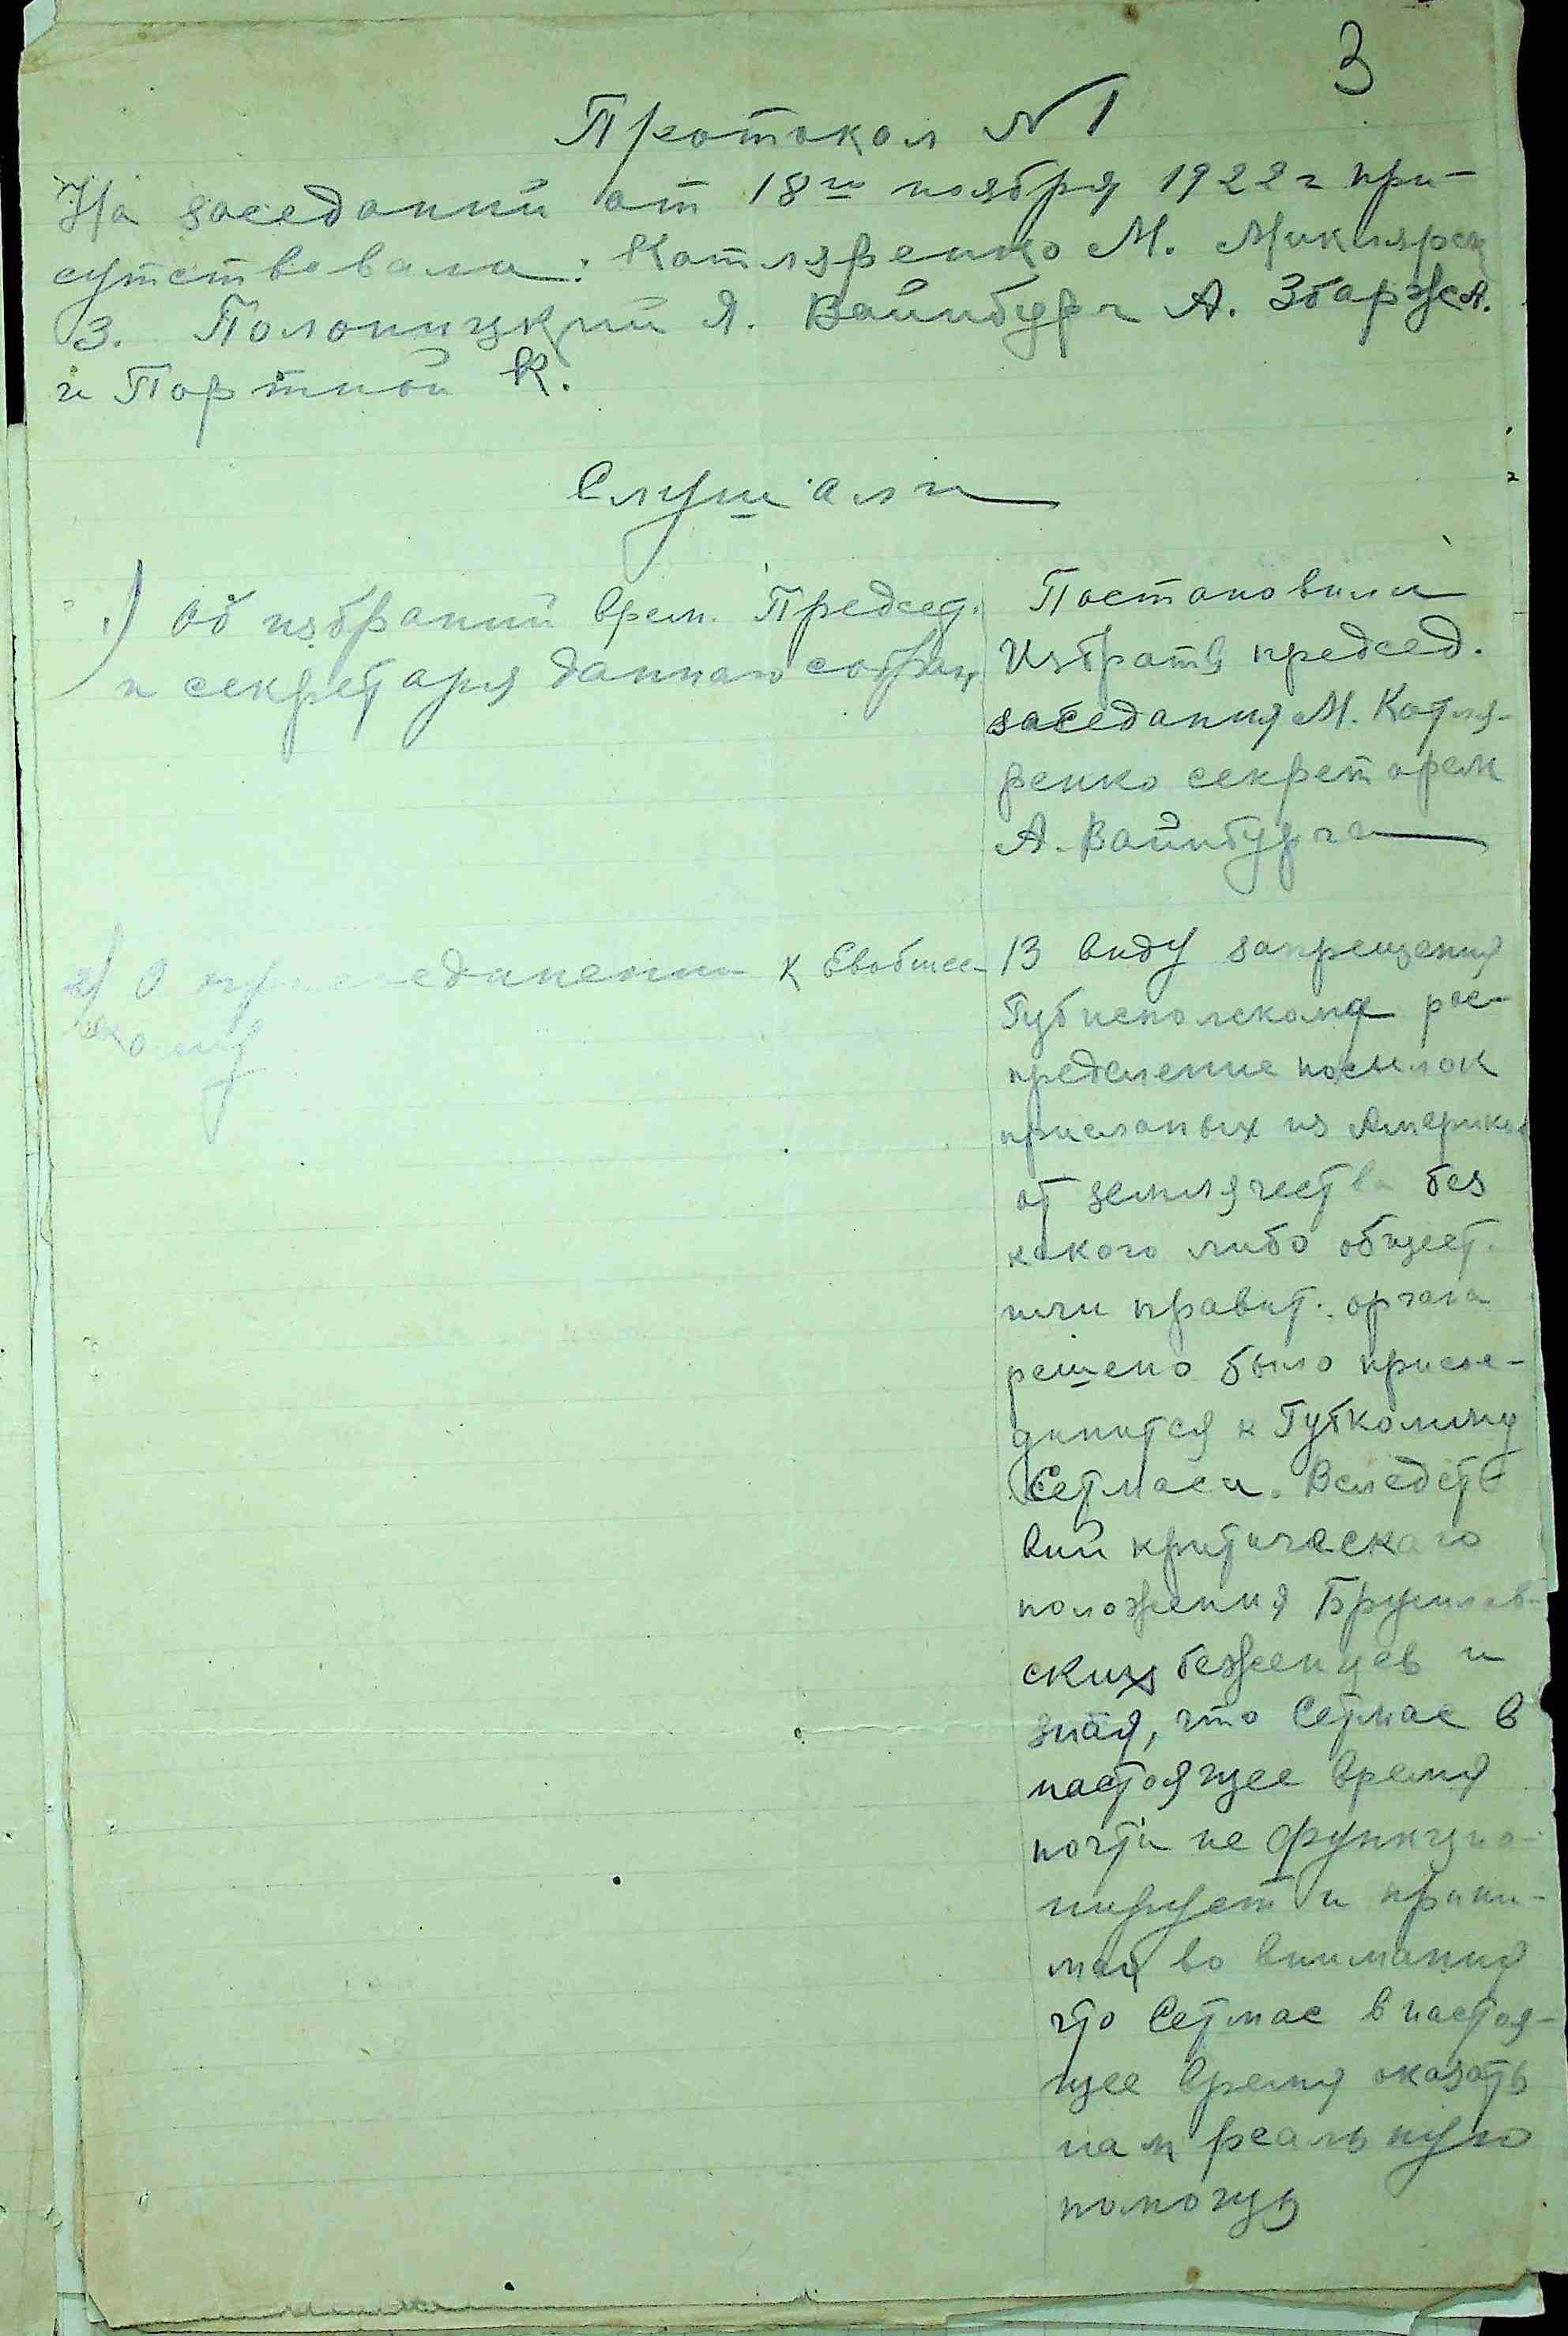 3
Протокол №1
На заседании от 18го ноября 1922 г при-
сутствовали: Котляренко М.
З. Полонницкий Я. Вайнбург А. Збарж А.
и Портной К.
Слушали
1) Об избрании врем. Председ.
и секретаря данного собран.
2) О присоединении к Евобщес-
кому
Постановили
Избрать председ.
заседания М. Котля-
ренко секретарем
А. Вайнбурга
В виду запрещения
Губисполкома рас-
пределение посылок
присланых из Америки
от землячества без
какого либо общест.
или правит. органа
решено было присое-
динится к Губкомиму
Сетмаса. Вследст
вии критическаго
положения Брусилов-
ских беженцев и
зная, что Сетмас в
настоящее время
почти не функцио-
нирует и прини-
мая во внимания
что Сетмас в настоя-
щее время оказать
нам реальную
помощь